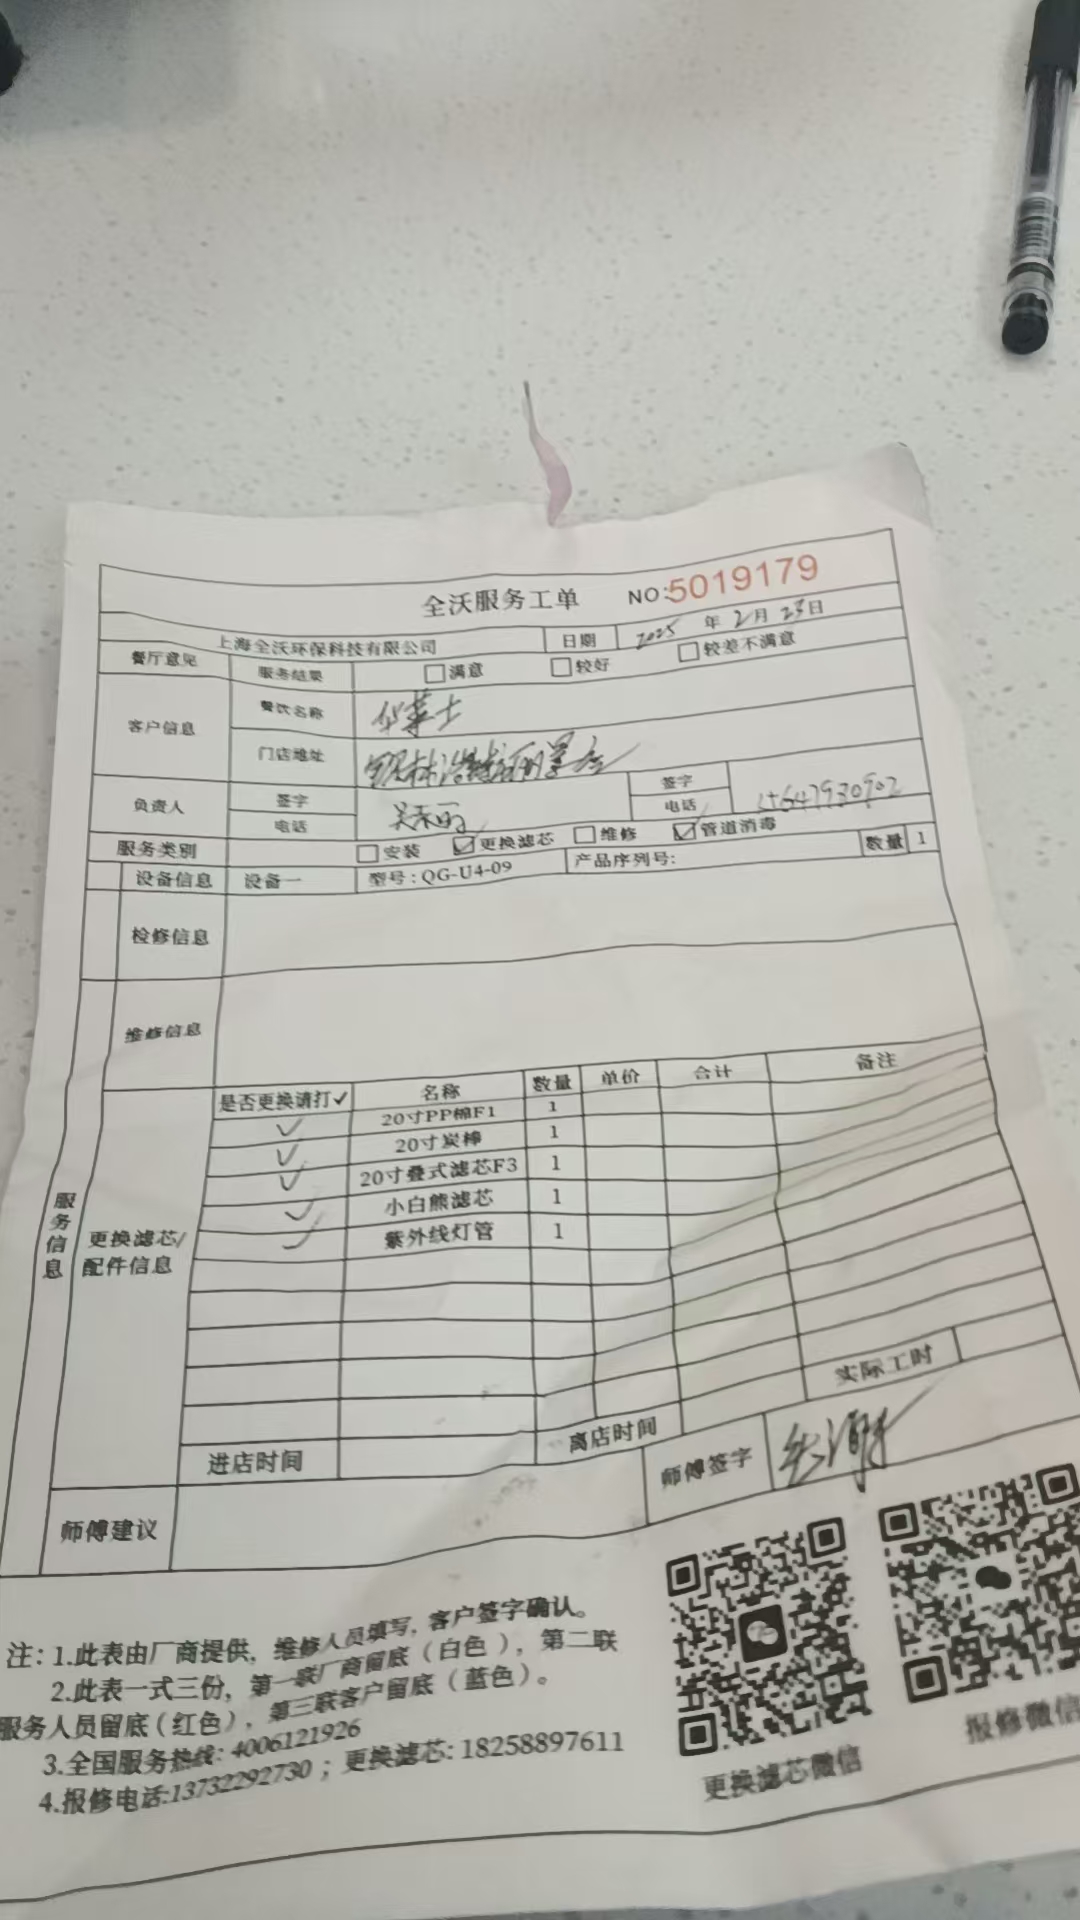 全沃服务工单 NO:5019179
上海全沃环保科技有限公司 日期 2025 年 2月 23日
餐厅意见 服务结果 □满意 □较好 □较差不满意
客户信息 餐饮名称 华莱士
门店地址
负责人 签字 签字
电话 电话
服务类别 □安装 ☑更换滤芯 □维修 ☑管道消毒
设备信息 设备一 型号：QG-U4-09 产品序列号： 数量 1
检修信息
维修信息
服务信息
更换滤芯/配件信息
是否更换请打✓ 名称 数量 单价 合计 备注
✓ 20寸PP棉F1 1
✓ 20寸炭棒 1
✓ 20寸叠式滤芯F3 1
✓ 小白熊滤芯 1
✓ 紫外线灯管 1
进店时间 离店时间 实际工时
师傅建议 师傅签字
注：1.此表由厂商提供，维修人员填写，客户签字确认。
2.此表一式三份，第一联厂商留底（白色），第二联
服务人员留底（红色），第三联客户留底（蓝色）。
3.全国服务热线：4006121926
4.报修电话:13732292730；更换滤芯：18258897611
更换滤芯微信
报修微信